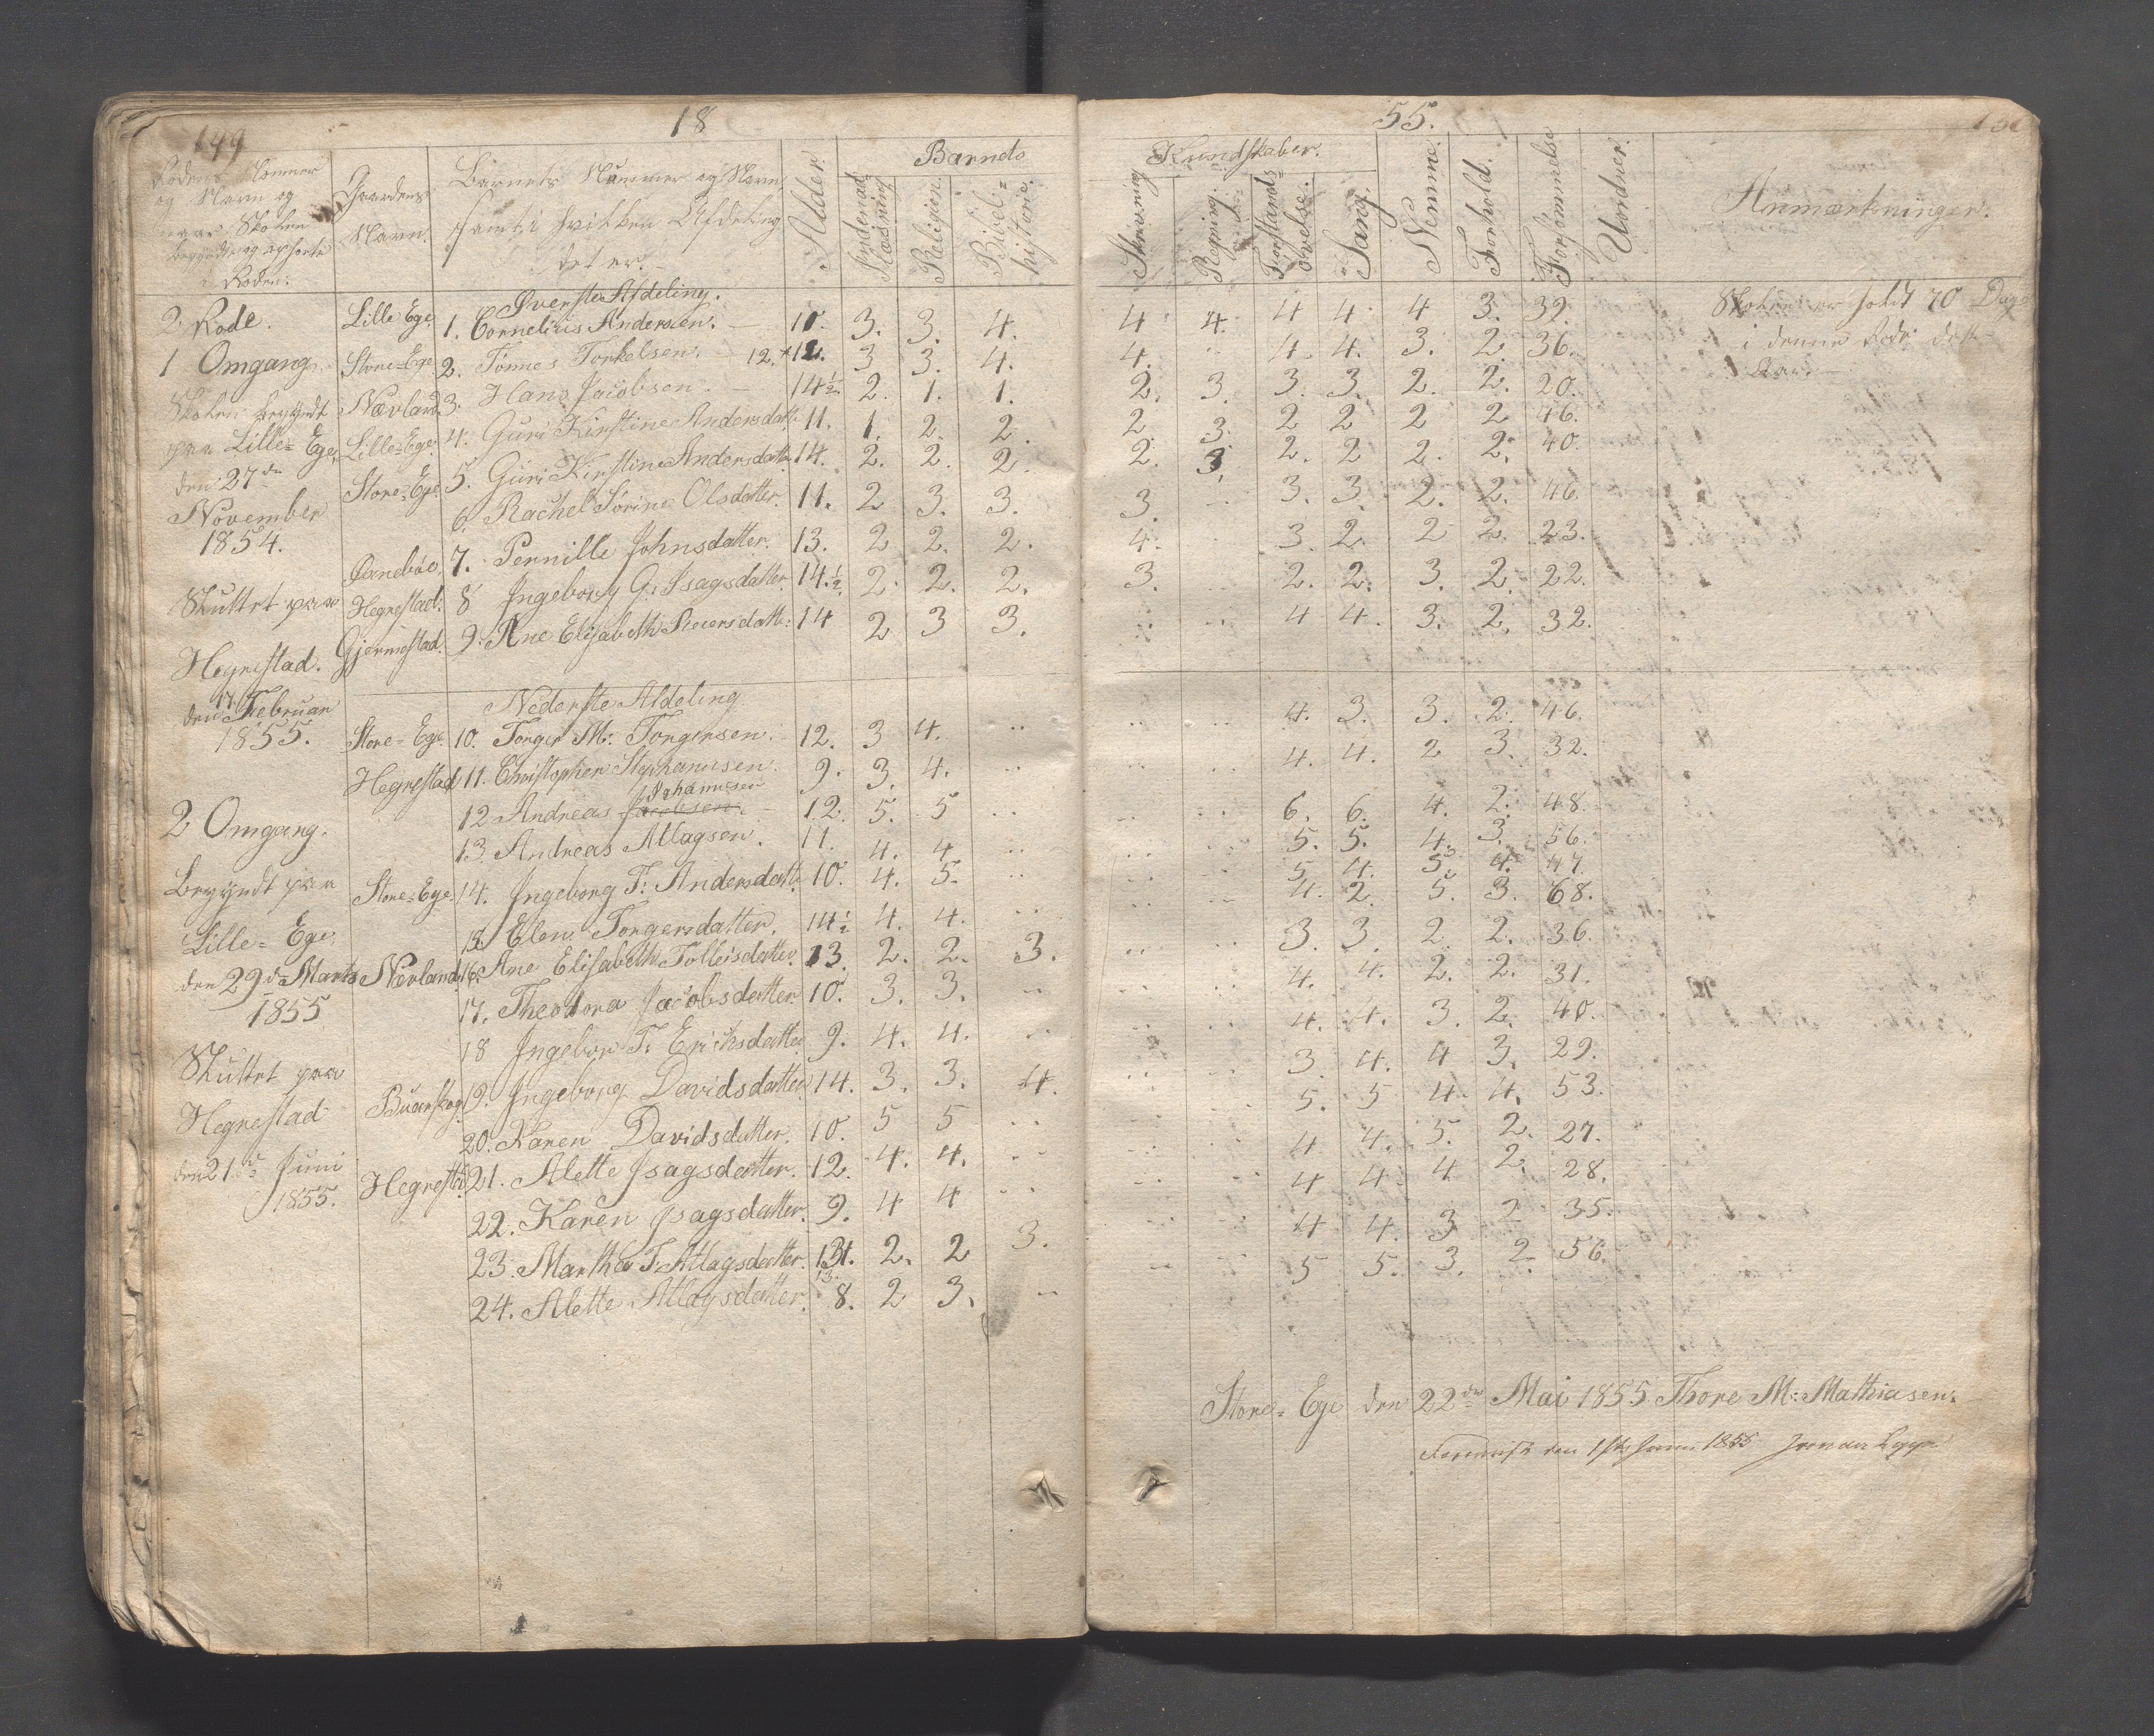 149
18
55.
Rodens Nommer
og Navn og
naar Skolen
begyndte og ophørte
i Roden:
Gaardens
Navn.
Barnets Nummer og Navn
samt i hvilken Afdeling
det er.
Alder.
Barnets
Indenad Læsning
Religion.
Bibel=historie.
Kundskaber.
Skrivning
Regning.
Forstands=øvelse.
Sang.
Nemme.
Forhold.
Forsømmelse
Uordner.
Anmærkninger.
Øverste Afdeling.
2. Rode. Lille Ege. 1. Cornelius Andersen. 11. 3. 3. 4. 4 4. 4 4. 4 3. 39. Skolen er holdt 70 Dage
1 Omgang. Store=Ege 2. Tønnes Torkelsen. 12.* 12. 3 3. 4. 4. .. 4. 4. 3. 2. 36. i denne Rode dette
Aar.
Skolen begyndt Nævland 3. Hans Jacobsen. 14½ 2. 1. 1. 2. 3. 3. 3. 2. 2. 20.
paa Lille=Ege Lille=Ege. 4. Guri Kirstine Andersdatt. 11. 1. 2. 2. 2 3. 2 2 2 2 46.
den 27de Store=Ege. 5. Guri Kirstine Andersdatter 14. 2. 2. 2. 2. 3. 2. 2 2. 2. 40.
November 6. Rachel Sørine Olsdatter. 11. 2 3. 3. 3. .. 3. 3. 2. 2. 46.
1854.
Ørnebøe. 7. Pernille Johnsdatter. 13. 2 2. 2. 4. .. 3. 2. 2 2. 23.
Sluttet paa Hegrestad. 8 Ingeborg G. Isagsdatter 14.½ 2. 2. 2. 3. .. 2. 2. 3. 2. 22.
Hegrestad. Gjermestad. 9. Ane Elisabeth Sieversdatt: 14 2 3 3. .. .. 4 4. 3. 2. 32.
den 17. Februar
1855.
Nederste Afdeling
Store=Ege. 10. Torger M: Torgersen. 12. 3 4. .. .. .. 4. 3. 3. 2. 46.
Hegrestad 11. Christopher Stephanusen. 9. 3. 4. .. .. .. 4. 4. 2 3. 32.
Johannesen
12 Andreas Jacobsen. 12. 5. 5 .. .. .. 6. 6. 4. 2. 48.
2 Omgang.
13. Andreas Atlagsen. 11. 4. 4 .. .. .. 5. 5. 4. 3. 56.
begyndt paa Store=Ege. 14. Ingeborg T: Andersdatt. 10. 4. 5. .. .. .. 5 4. 5. 4. 47.
Lille=Ege 15. Elen Torgersdatter. 14½ 4. 4. .. .. .. 4. 2. 5. 3. 68.
den 29de Marts Nævland 16. Ane Elisabeth Tolleisdatter 13. 2. 2. 3. .. .. 3. 3. 2. 2. 36.
1855
17. Theodora Jacobsdatter 10. 3. 3. .. .. .. 4. 4. 2. 2. 31.
18 Ingebor T. Eriksdatter 9. 4. 4. .. .. .. 4. 4. 3. 2. 40.
Sluttet paa
Hegrestad Buenskog 19. Ingeborg Davidsdatter 14. 3. 3. 4. .. .. 3. 4. 4 3. 29.
20. Karen Davidsdatter. 10. 5 5 .. .. .. 5. 5 4. 4. 53.
den 21de Juni
1855.
Hegrestad 21. Alette Isagsdatter. 12. 4. 4. .. .. .. 4 4. 5. 2. 27.
22. Karen Isagsdatter. 9. 4 4 .. .. .. 4 4. 4 2. 28.
23. Martha T: Atlagsdatter. 131. 2. 2 3. .. .. 4 4. 3 2 35.
13.
24. Alette Atlagsdatter. 8. 2 3. .. .. .. 5 5. 3. 2. 56.
Store=Ege den 22de Mai 1855. Thore M: Mathiasen.
den 1ste Juni 1855